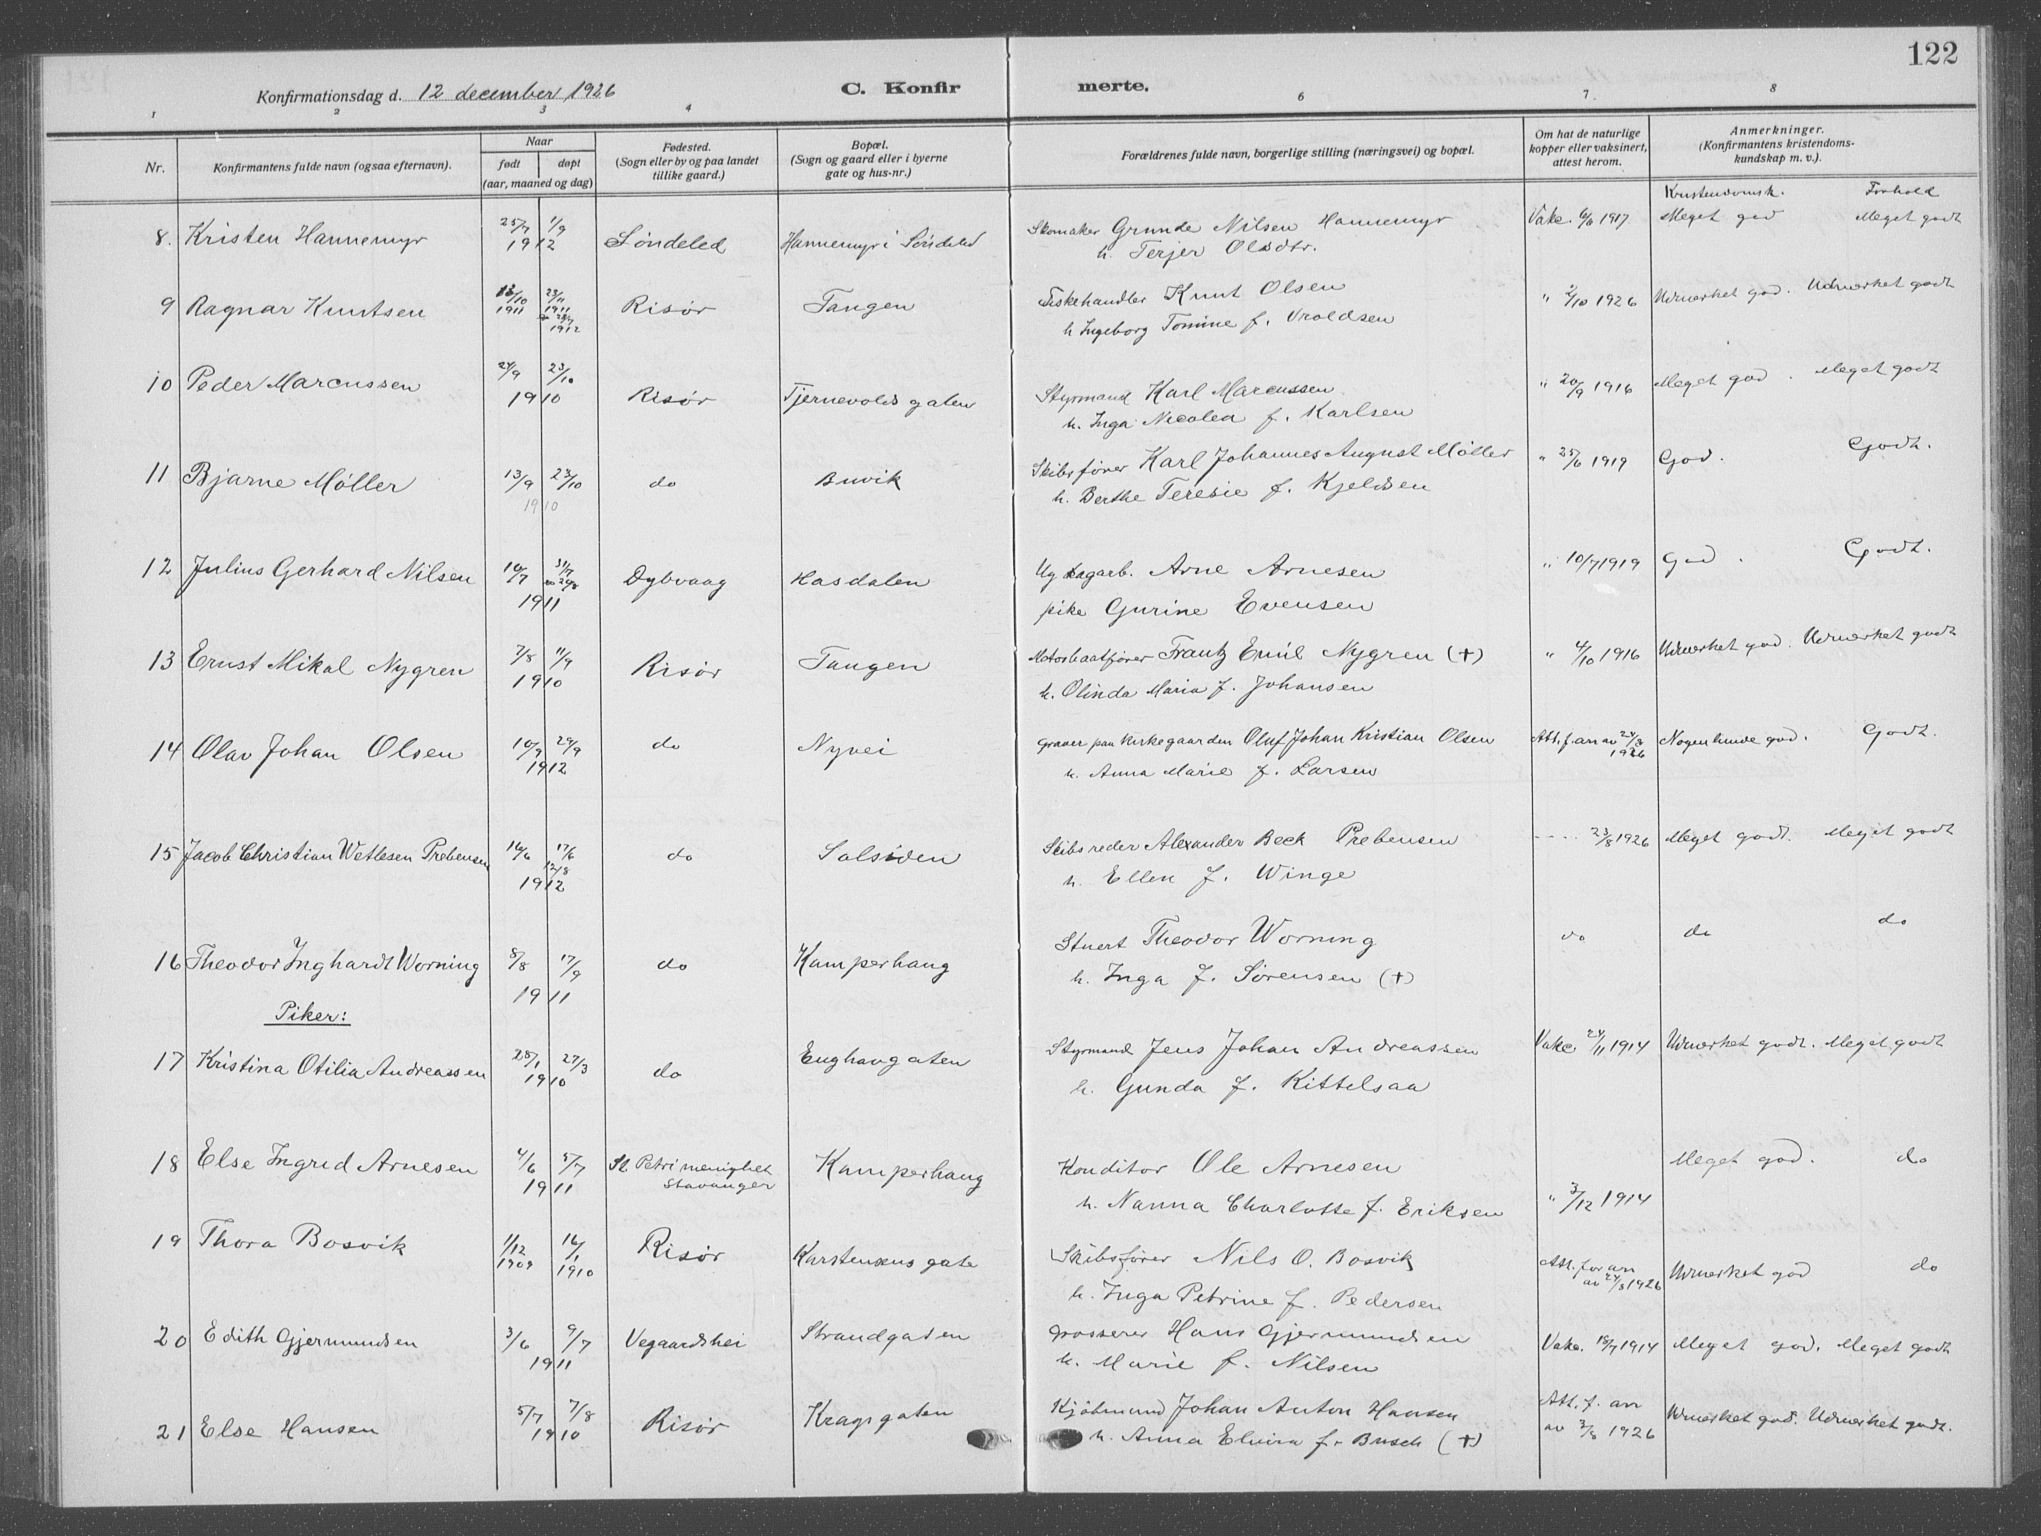 122
Konfirmationsdag d. 12 december 1926
C. Konfirmerte.
1 2 3 4 6 7 8
Nr.
Konfirmantens fulde navn (ogsaa efternavn).
Naar
født døpt
(aar, maaned og dag)
Fødested.
(Sogn eller by og paa landet
tillike gaard.)
Bopæl.
(Sogn og gaard eller i byerne
gate og hus-nr.)
Forældrenes fulde navn, borgerlige stilling (næringsvei) og bopæl.
Om hat de naturlige
kopper eller vaksinert,
attest herom.
Anmerkninger.
(Konfirmantens kristendoms-
kundskap m. v.).
Kristendomsk. Forhold
8. Kristen Hannemyr 25/7 1/9 1912 Søndeled Hannemyr i Søndeled Skomaker Grunde Nilsen Hannemyr Vakc. 6/6 1917 Meget god Meget godt
h. Terjer Olsdtr.
9 Ragnar Knutsen 13/10 1911 23/11 1911 1912 Risør Tangen Fiskehandler Knut Olsen " 2/10 1926 Udmerket god. Udmerket godt
h Ingeborg Tomine f. Vroldsen
10 Peder Marcussen 24/9 23/10 1910 Risør Tjernevolds gaten Styrmand Karl Marcussen " 20/9 1916 Meget god. Meget godt
h. Inga Nicolea f. Karlsen
11 Bjarne Møller 13/9 23/10 1910 do Buvik Skibsfører Karl Johannes August Møller " 25/6 1919 God. Godt.
h. Berthe Teresie f. Kjeldsen
12 Julius Gerhard Nilsen 10/7 31/7 1911 Dybvaag Hasdalen Ug dagarb. Arne Arnesen " 10/7 1919 God. Godt.
pike Gurine Evensen
13 Ernst Mikal Nygren 7/8 11/9 1910 Risør Tangen Motorbaatfører Frantz Emil Nygren (+) " 4/10 1916 Udmerket god. Udmerket godt
h. Olinda Maria f. Johansen
14 Olav Johan Olsen 10/9 29/9 1912 do Nyvei Graver paa kirkegaarden Oluf Johan Kristian Olsen Att. f. an av 24/8 1926 Nogenlunde god. Godt.
h. Anna Marie f. Larsen
15 Jacob Christian Wetlesen Prebensen 16/6 17/6 12/8 1912 do Solsiden Skibsreder Alexander Beck Prebensen 23/8 1926 Meget godt. Meget godt
h. Ellen f. Winge
16 Theodor Inghardt Worning 8/8 17/9 1911 do Kamperhaug Stuert Theodor Worning do do do
h. Inga f. Sørensen (+)
Piker:
17 Kristina Otilia Andreassen 25/1 27/3 1910 do Enghavgaten Styrmand Jens Johan Andreassen Vakc 24/11 1914 Udmerket godt. Meget godt
h. Gunda f. Kittelsaa
18 Else Ingrid Arnesen 4/6 5/7 1911 St. Petri menighet Stavanger Kamperhaug Konditor Ole Arnesen Meget god. do
h. Nanna Charlotte f. Eriksen " 3/12 1914
19 Thora Bosvik 1/12 1909 16/1 1910 Risør Karstensens gate Skibsfører Nils O. Bosvik Att. for an av 24/8 1926 Udmerket god do
h. Inga Petrine f. Pedersen
20 Edith Gjermundsen 3/6 9/7 1911 Vegaardshei Strandgaten Grosserer Hans Gjermundsen Vakc. 18/7 1914 Meget god. Meget godt
h. Marie f. Nilsen
21 Else Hansen 5/7 7/8 1910 Risør Kragsgaten Kjøbmand Johan Anton Hansen Att. f. an av 3/8 1926 Udmerket god. Udmerket godt.
h. Anna Elvira f. Busch (+)